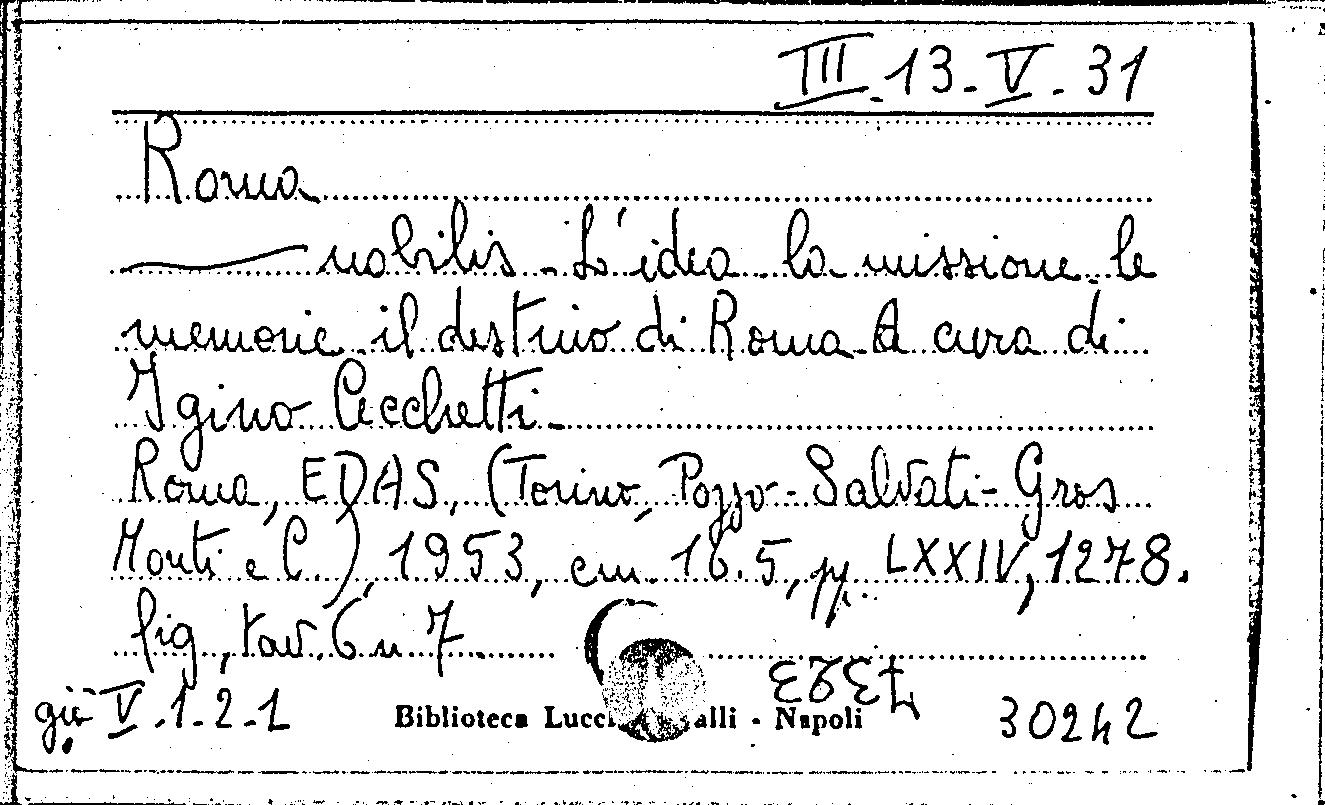 III.13.V.31
Roma
nobilis. L'idea la missione le
memorie il destino di Roma. A cura di
Igino Cecchetti.
Roma, EDAS, (Torino, Pozzo-Salvati-Gros
Monti e C.), 1953, cm. 16.5, pp. LXXIV, 1278.
fig, tav. 6 n 7
7323
già V.1.2.1
Biblioteca Lucc alli - Napoli
30242